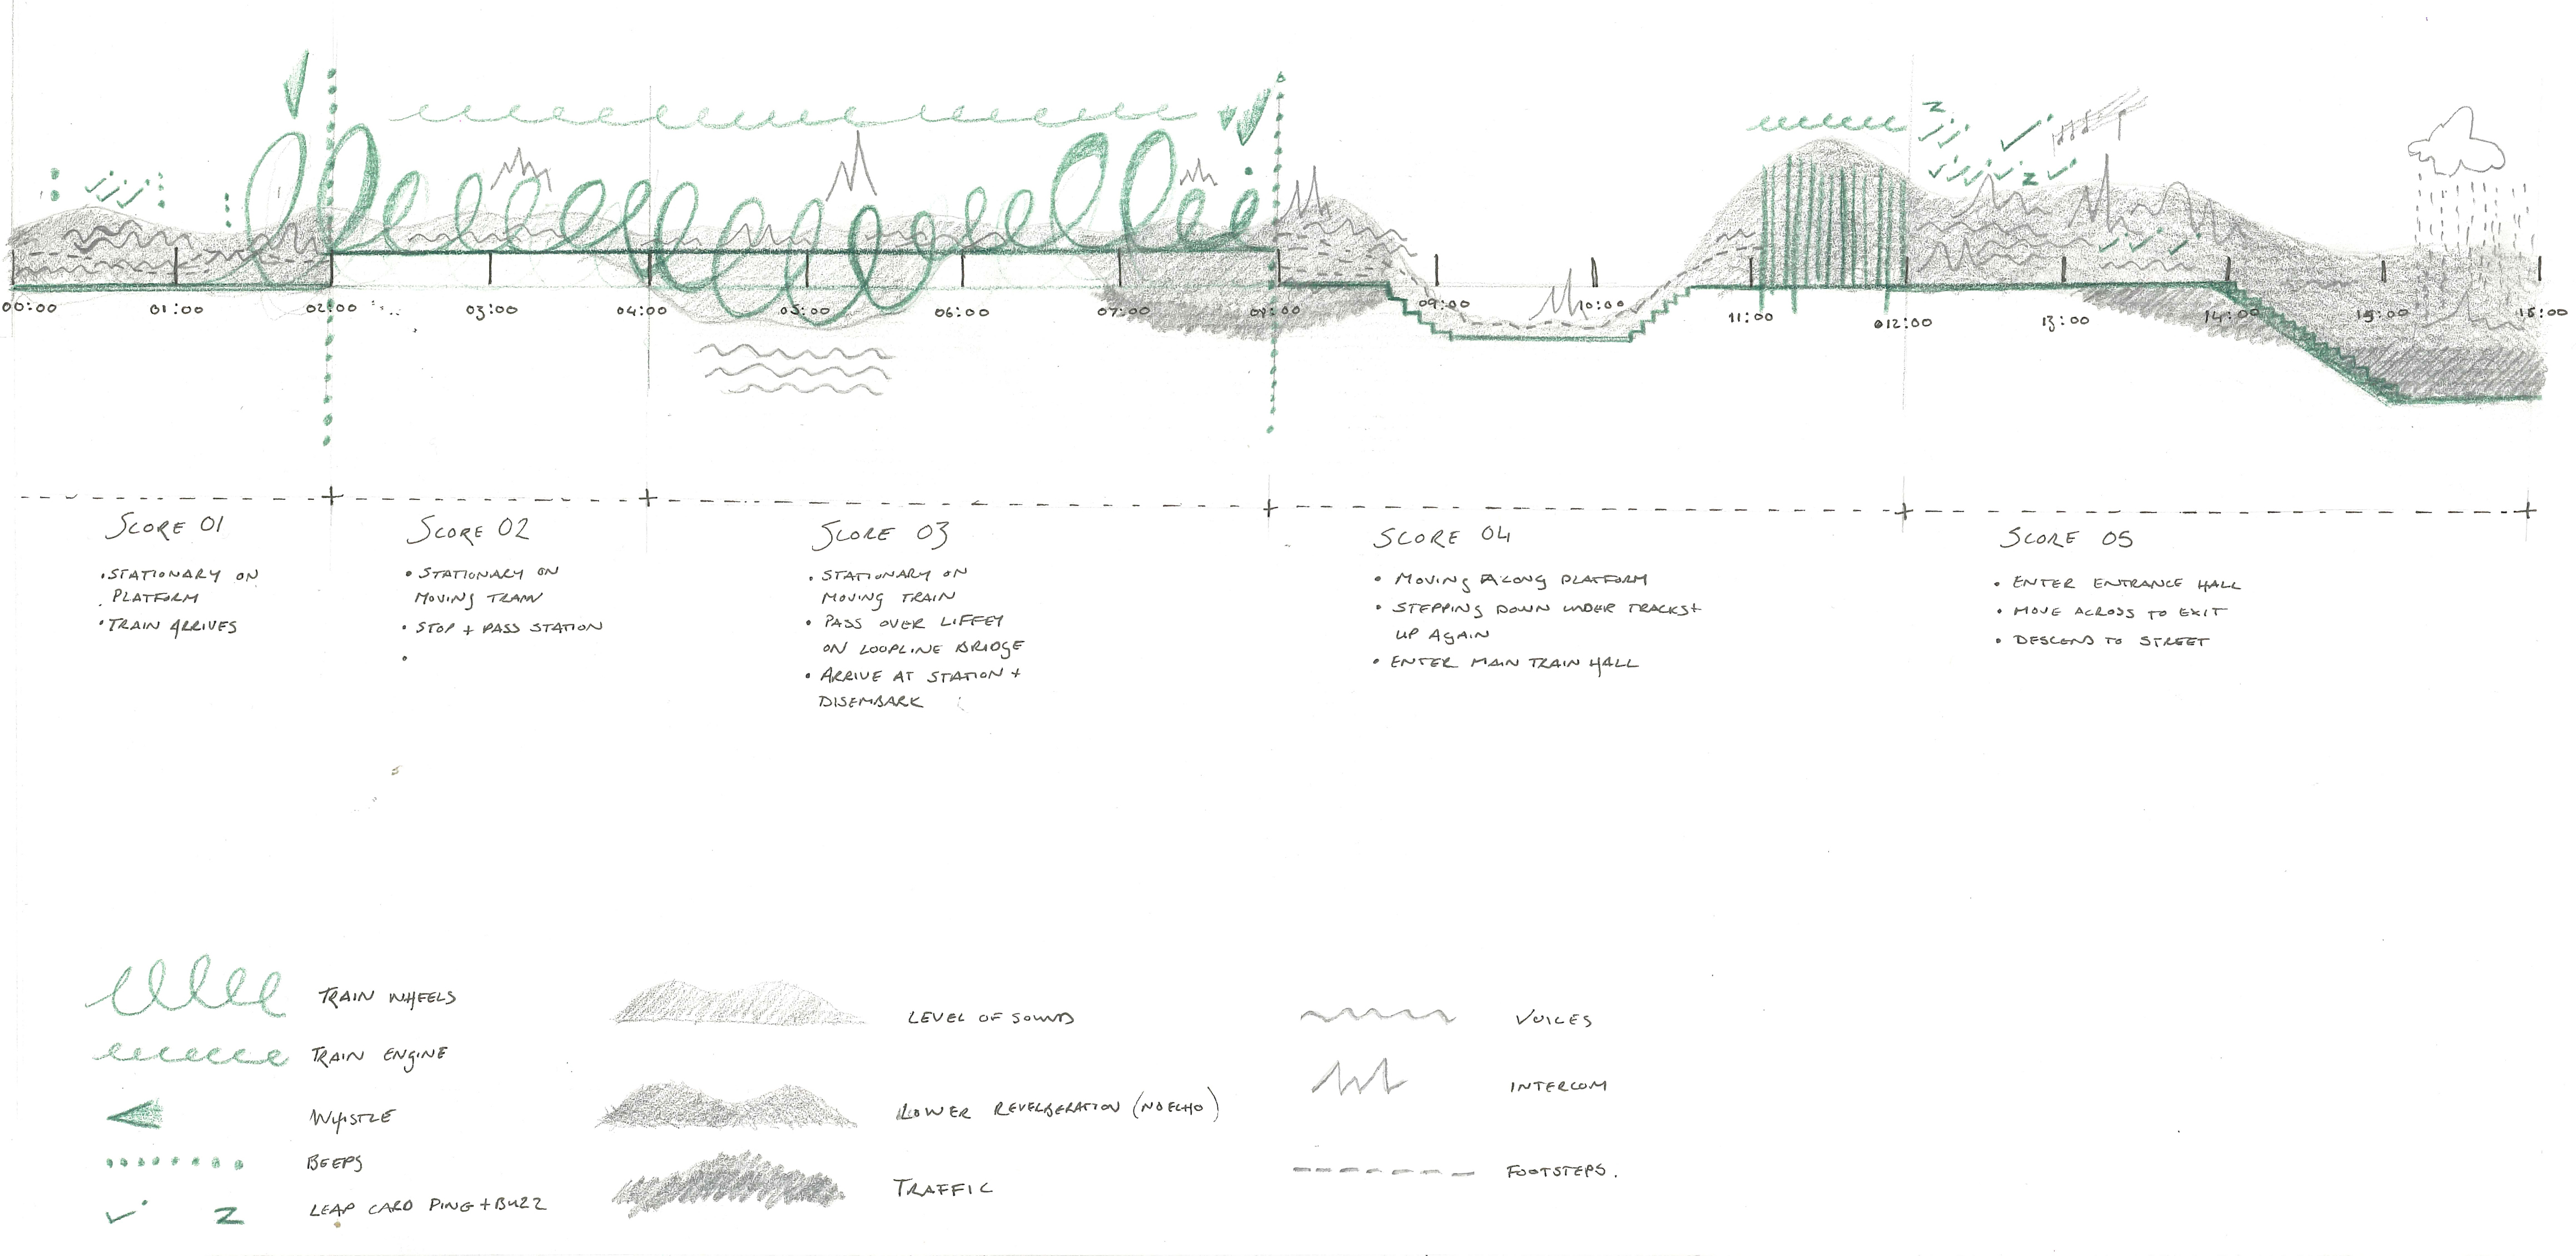 00:00 01:00 02:00 03:00 04:00 05:00 06:00 07:00 08:00 09:00 10:00 11:00 12:00 13:00 14:00 15:00 16:00
SCORE 01
• STATIONARY ON
PLATFORM
• TRAIN ARRIVES
SCORE 02
• STATIONARY ON
MOVING TRAIN
• STOP + PASS STATION
•
SCORE 03
• STATIONARY ON
MOVING TRAIN
• PASS OVER LIFFEY
ON LOOPLINE BRIDGE
• ARRIVE AT STATION +
DISEMBARK
SCORE 04
• MOVING ALONG PLATFORM
• STEPPING DOWN UNDER TRACKS +
UP AGAIN
• ENTER MAIN TRAIN HALL
SCORE 05
• ENTER ENTRANCE HALL
• MOVE ACROSS TO EXIT
• DESCEND TO STREET
TRAIN WHEELS
TRAIN ENGINE
WHISTLE
BEEPS
LEAP CARD PING + BUZZ
LEVEL OF SOUND
LOWER REVERBERATION (NO ECHO)
TRAFFIC
VOICES
INTERCOM
FOOTSTEPS.